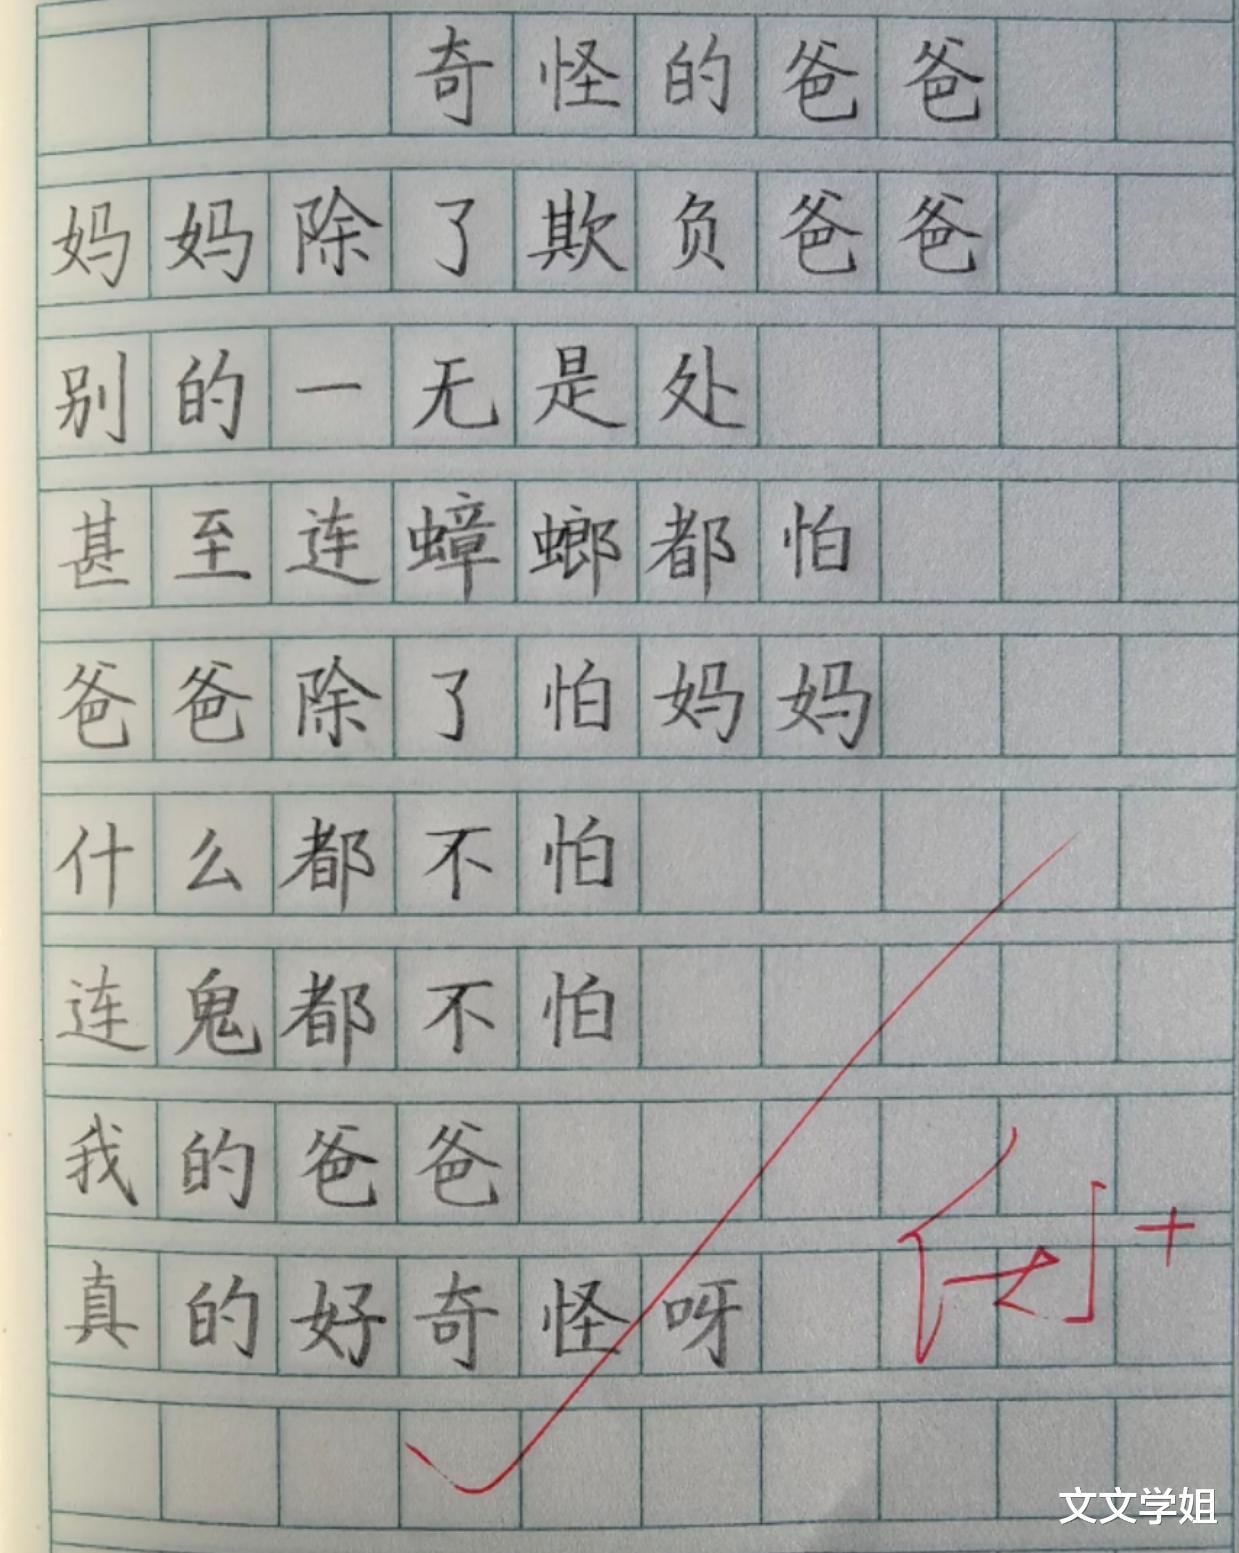 奇怪的爸爸
妈妈除了欺负爸爸
别的一无是处
甚至连蟑螂都怕
爸爸除了怕妈妈
什么都不怕
连鬼都不怕
我的爸爸
真的好奇怪呀
文文学姐